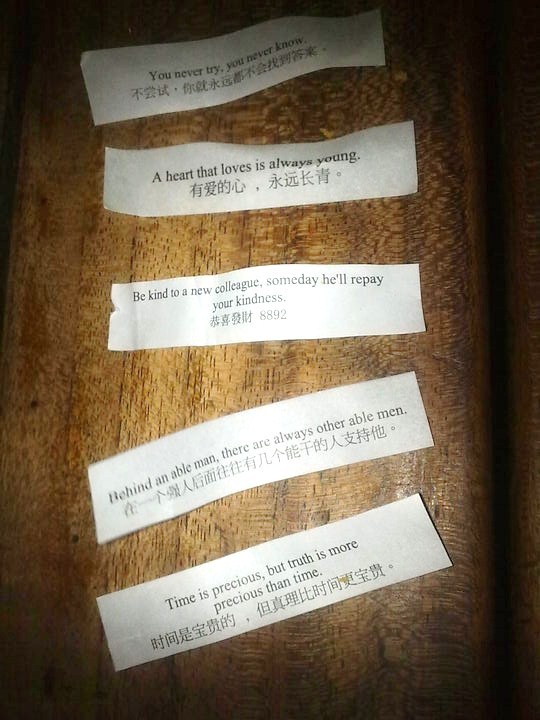 You never try, you never know.
不尝试，你就永远都不会找到答案。
A heart that loves is always young.
有爱的心 ，永远长青。
Be kind to a new colleague, someday he'll repay
your kindness.
恭喜發財 8892
Behind an able man, there are always other able men.
在一个强人后面往往有几个能干的人支持他。
Time is precious, but truth is more
precious than time.
时间是宝贵的 ，但真理比时间更宝贵。